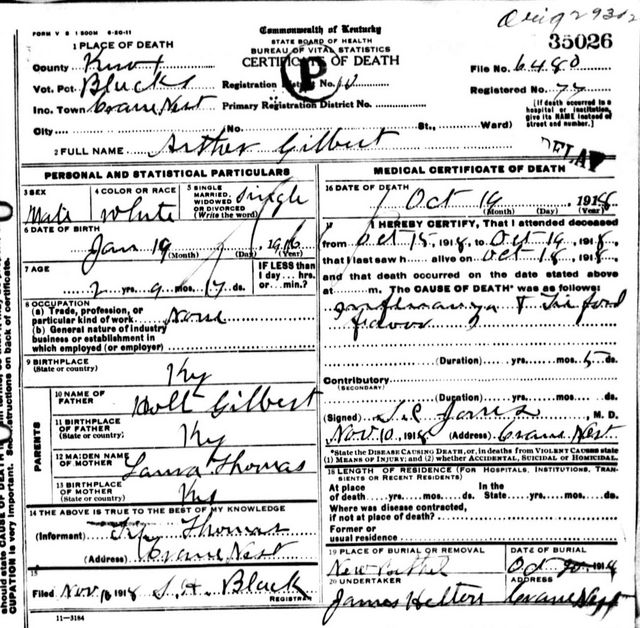 Orig 29302
FORM V S 1 500M 6-20-11
Commonwealth of Kentucky
STATE BOARD OF HEALTH
BUREAU OF VITAL STATISTICS
CERTIFICATE OF DEATH
35026
1 PLACE OF DEATH
County Knox
Vot. Pct. Blacks
Inc. Town Crane Nest
Registration District No. 10
Primary Registration District No.
P
File No. 6480
Registered No. 77
[If death occurred in a hospital or institution, give its NAME instead of street and number.]
City (No. St., Ward)
2 FULL NAME Arther Gilbert
DELAY
PERSONAL AND STATISTICAL PARTICULARS
3 SEX Male
4 COLOR OR RACE White
5 SINGLE MARRIED, WIDOWED OR DIVORCED (Write the word) Single
6 DATE OF BIRTH
Jan 19 1916
(Month) (Day) (Year)
7 AGE
2 yrs. 9 mos. ds.
IF LESS than 1 day... hrs. or... min.?
8 OCCUPATION
(a) Trade, profession, or particular kind of work None
(b) General nature of industry business or establishment in which employed (or employer)
9 BIRTHPLACE (State or country) Ky
PARENTS
10 NAME OF FATHER Holt Gilbert
11 BIRTHPLACE OF FATHER (State or country) Ky
12 MAIDEN NAME OF MOTHER Laura Thomas
13 BIRTHPLACE OF MOTHER (State or country) Ky
14 THE ABOVE IS TRUE TO THE BEST OF MY KNOWLEDGE
(Informant) Thomas
(Address) Crane Nest
15
Filed Nov 1918 S. H. Black
REGISTRAR
11-3184
MEDICAL CERTIFICATE OF DEATH
16 DATE OF DEATH
Oct 19 1918
(Month) (Day) (Year)
17 I HEREBY CERTIFY, That I attended deceased
from Oct 15, 1918, to Oct 19, 1918,
that I last saw h alive on Oct 18, 1918,
and that death occurred on the date stated above
at m. The CAUSE OF DEATH* was as follows:
(Duration) yrs. mos. 5 ds.
Contributory
(SECONDARY)
(Duration) yrs. mos. ds.
(Signed) Jones, M. D.
Nov 10, 1918 (Address) Crane Nest
*State the DISEASE CAUSING DEATH, or, in deaths from VIOLENT CAUSES state (1) MEANS OF INJURY; and (2) whether ACCIDENTAL, SUICIDAL or HOMICIDAL.
18 LENGTH OF RESIDENCE (FOR HOSPITALS, INSTITUTIONS, TRANSIENTS OR RECENT RESIDENTS)
At place of death yrs. mos. ds. In the State yrs. mos. ds.
Where was disease contracted, if not at place of death?
Former or usual residence
19 PLACE OF BURIAL OR REMOVAL New Bethel
DATE OF BURIAL Oct 20 1918
20 UNDERTAKER James Helton
ADDRESS Crane Nest
should state CAUSE OF DEATH in
CUPATION is very important. See instructions on back of certificate.